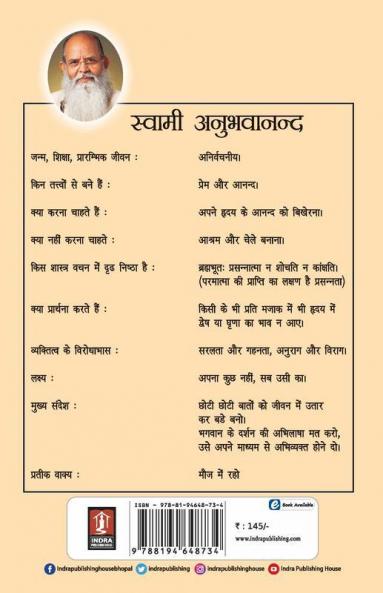 स्वामी अनुभवानन्द
जन्म, शिक्षा, प्रारम्भिक जीवन : अनिर्वचनीय।
किन तत्त्वों से बने हैं : प्रेम और आनन्द।
क्या करना चाहते हैं : अपने हृदय के आनन्द को बिखेरना।
क्या नहीं करना चाहते : आश्रम और चेले बनाना।
किस शास्त्र वचन में दृढ निष्ठा है : ब्रह्मभूतः प्रसन्नात्मा न शोचति न कांक्षति।
(परमात्मा की प्राप्ति का लक्षण है प्रसन्नता)
क्या प्रार्थना करते हैं : किसी के भी प्रति मजाक में भी हृदय में
द्वेष या घृणा का भाव न आए।
व्यक्तित्व के विरोधाभास : सरलता और गहनता, अनुराग और विराग।
लक्ष्य : अपना कुछ नहीं, सब उसी का।
मुख्य संदेश : छोटी छोटी बातों को जीवन में उतार
कर बडे बनो।
भगवान के दर्शन की अभिलाषा मत करो,
उसे अपने माध्यम से अभिव्यक्त होने दो।
प्रतीक वाक्य : मौज में रहो
INDRA
PUBLISHING HOUSE
ISBN - 978-81-94648-73-4
9 788194 648734
e Book Available
₹ : 145/-
www.indrapublishing.com
indrapublishinghousebhopal
indrapublishing
indrapublishinghouse
Indra Publishing House